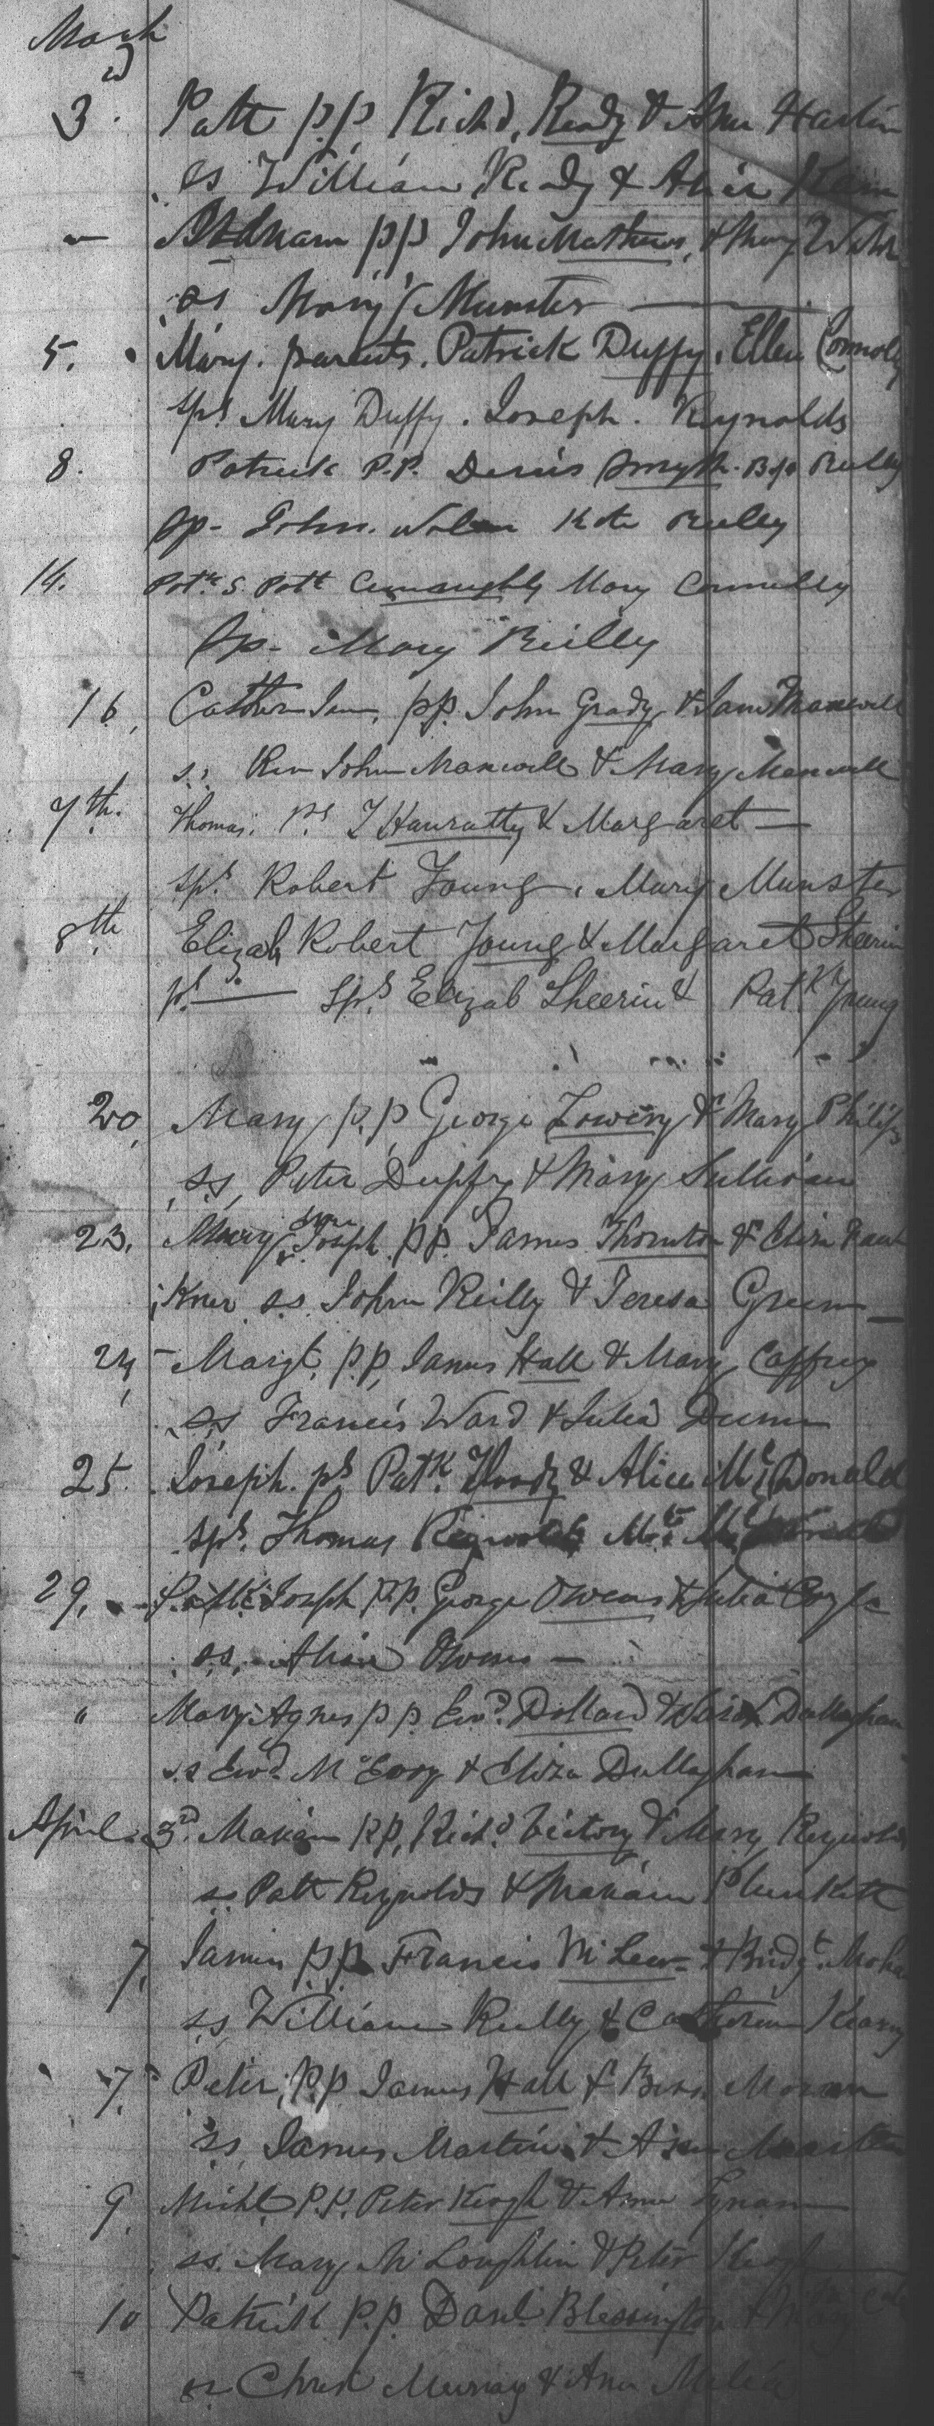 March
3d. Patt p.p. Richd. Ready & Ann Martin
ss William Ready & Alice
" Abraham pp John Mathews, & Mary
ss Mary Munster —
5. Mary. parents. Patrick Duffy. Ellen Connoly
sps Mary Duffy. Joseph. Reynolds
8. Patrick P.P. Denis Smyth. Reilly
Sp- John. Nolan Kate Reilly
14. Patk S. Patt Mary Connelly
Sp- Mary Reilly
16, Catherine, pp. John Grady & Jane Maxwell
ss Rev John Maxwell & Mary Maxwell
7th. Thomas. Ps T Hanratty & Margaret —
sps Robert Young. Mary Munster
8th. Elizab Robert Young & Margaret Sheerin
ps — Sps Elizab Sheerin & Patk Young
20, Mary p.p, George Lowery & Mary Philips
ss, Peter Duffy & Mary Sullivan
23. Mary Joseph pp. James Thornton & Eliza
ss. John Reilly & Teresa Green —
24, Margt, p.p, James Hall & Mary Caffrey
ss Francis Ward & Julia Dunn
25. Joseph. ps Patk. & Alice McDonald
sps. Thomas Reynolds
29, Joseph p.p. George Owens & Julia Coyle
ss, Alice Owens —
" Mary Agnes p p. Ewd. Dollard & Dullaghan
s.s Ewd. McEvoy & Eliza Dullaghan
April 3rd. Marian P.P, Richd Victory & Mary Reynolds
ss Patt Reynolds & Marian Plunkett
7, James p.p Francis & Bridgt.
ss, William Reilly & Catherine Keary
7. Peter, P.p James Hall & Moran
ss, James Martin & Ann
9, Michl P.P. Peter Keogh & Anne Lynam
ss. Mary McLoughlin & Peter Keogh
10 Patrick P.p. Danl. Blessington &
ss Christ Murray & Ann Melia